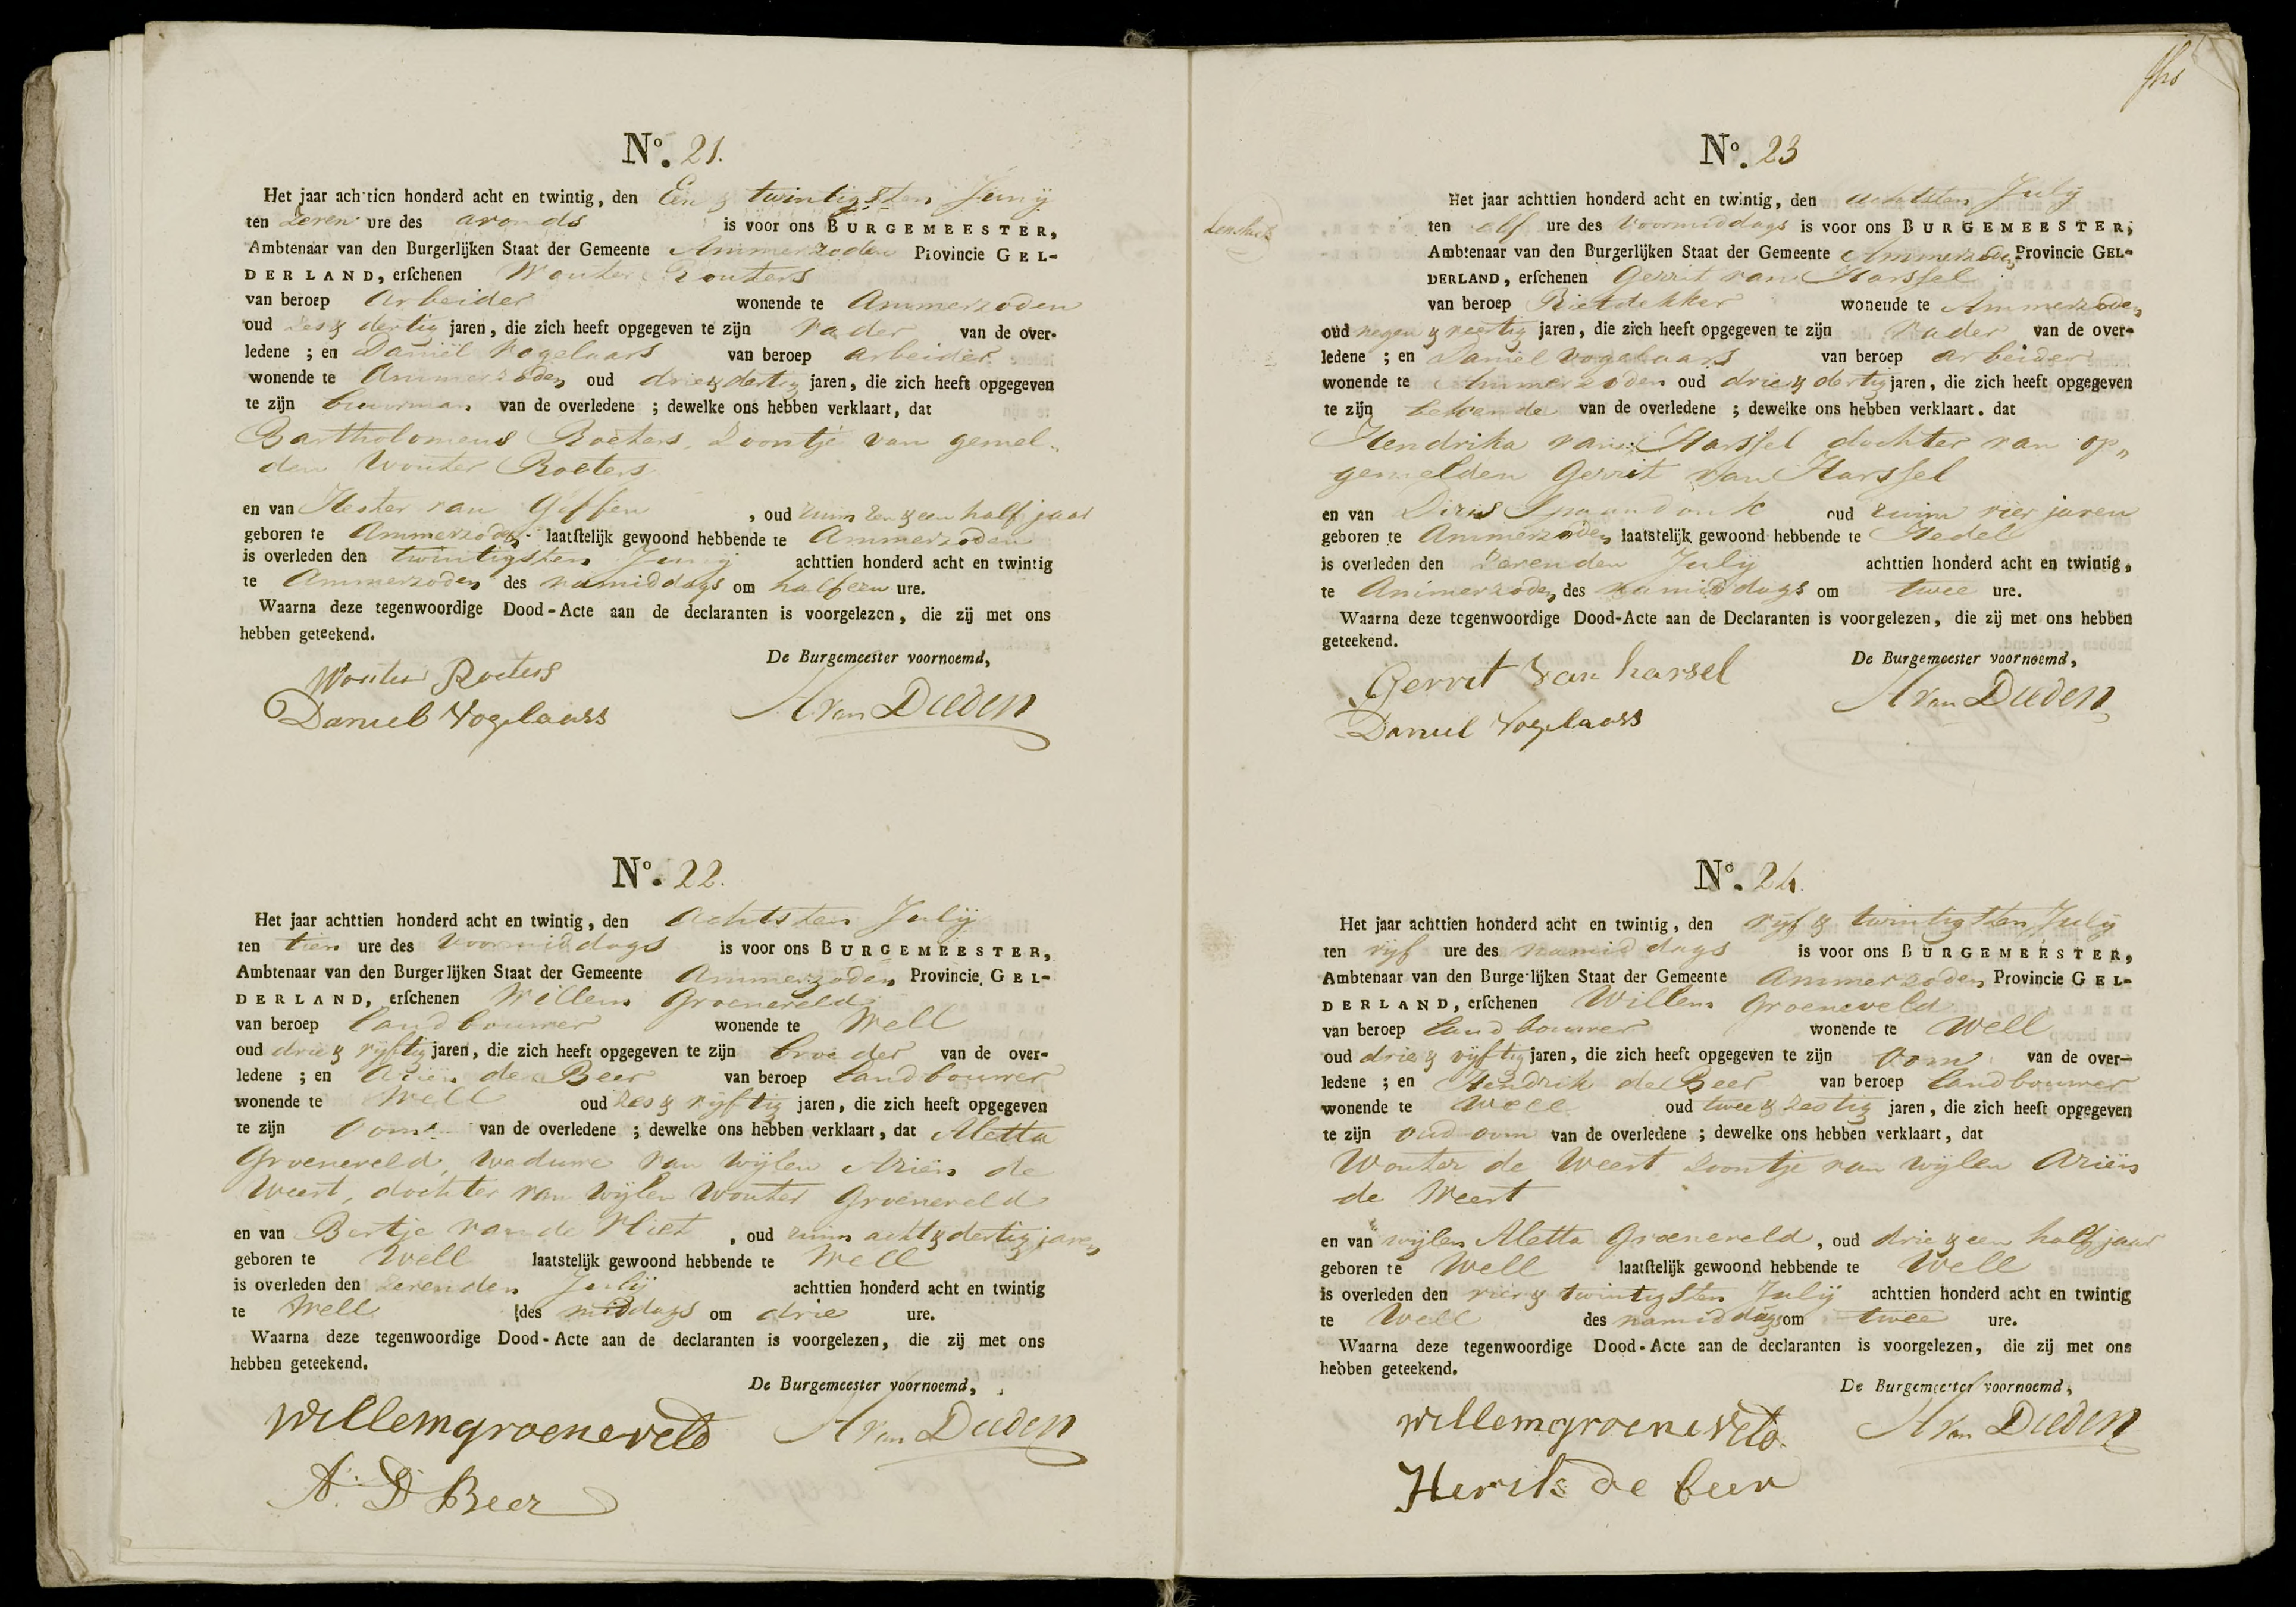 No. 21.
Het jaar achttien honderd acht en twintig, den Een & twintigsten Junij
ten zeven ure des avonds is voor ons BURGEMEESTER,
Ambtenaar van den Burgerlijken Staat der Gemeente Ammerzoden Provincie GEL-
DERLAND, erschenen Wouter Routers
van beroep Arbeider wonende te Ammerzoden
oud zes & dertig jaren, die zich heeft opgegeven te zijn vader van de over-
ledene ; en Daniël Vogelaars van beroep arbeider
wonende te Ammerzoden oud drie & dertig jaren, die zich heeft opgegeven
te zijn buurman van de overledene ; dewelke ons hebben verklaart, dat
Bartholomeus Roeters, zoontje van gemel-
den Wouter Roeters
en van Hester van Giffen, oud ruim een half jaar
geboren te Ammerzoden laatstelijk gewoond hebbende te Ammerzoden
is overleden den twintigsten Junij achttien honderd acht en twintig
te Ammerzoden des namiddags om half een ure.
Waarna deze tegenwoordige Dood-Acte aan de declaranten is voorgelezen, die zij met ons
hebben geteekend.
De Burgemeester voornoemd,
Wouter Roeters
Daniel Vogelaars
A van Dieden
No. 22.
Het jaar achttien honderd acht en twintig, den Achtsten Julij
ten tien ure des voormiddags is voor ons BURGEMEESTER,
Ambtenaar van den Burgerlijken Staat der Gemeente Ammerzoden Provincie GEL-
DERLAND, erschenen Willem Groeneveld
van beroep landbouwer wonende te Well
oud drie & vijftig jaren, die zich heeft opgegeven te zijn broeder van de over-
ledene ; en Ariën de Beer van beroep landbouwer
wonende te Well oud zes & vijftig jaren, die zich heeft opgegeven
te zijn oom van de overledene ; dewelke ons hebben verklaart, dat Aletta
Groeneveld, weduwe van wijlen Ariën de
Weert, dochter van wijlen Wouter Groeneveld
en van Bertje van de Vliet, oud ruim acht & dertig jaren
geboren te Well laatstelijk gewoond hebbende te Well
is overleden den zevenden Julij achttien honderd acht en twintig
te Well des middags om drie ure.
Waarna deze tegenwoordige Dood-Acte aan de declaranten is voorgelezen, die zij met ons
hebben geteekend.
De Burgemeester voornoemd,
willem groeneveld
A. D Beer
A van Dieden
No. 23
Het jaar achttien honderd acht en twintig, den achtsten July
ten elf ure des voormiddags is voor ons BURGEMEESTER,
Ambtenaar van den Burgerlijken Staat der Gemeente Ammerzoden Provincie GEL-
DERLAND, erschenen Gerrit van Harssel
van beroep Rietdekker wonende te Ammerzoden
oud negen & veertig jaren, die zich heeft opgegeven te zijn vader van de over-
ledene ; en Daniel Vogelaars van beroep arbeider
wonende te Ammerzoden oud drie & dertig jaren, die zich heeft opgegeven
te zijn bekende van de overledene ; dewelke ons hebben verklaart. dat
Hendrika van Harssel dochter van op,,
gemelden Gerrit van Harssel
en van Diris Spaandonk oud ruim vier jaren
geboren te Ammerzoden laatstelijk gewoond hebbende te Hedel
is overleden den zevenden July achttien honderd acht en twintig,
te Ammerzoden des namiddags om twee ure.
Waarna deze tegenwoordige Dood-Acte aan de Declaranten is voorgelezen, die zij met ons hebben
geteekend.
De Burgemeester voornoemd,
Gerret van harsel
Daniel Vogelaars
A van Dieden
No. 24.
Het jaar achttien honderd acht en twintig, den vijf & twintigsten July
ten vijf ure des namiddags is voor ons BURGEMEESTER,
Ambtenaar van den Burgerlijken Staat der Gemeente Ammerzoden Provincie GEL-
DERLAND, erschenen Willem Groeneveld
van beroep landbouwer wonende te Well
oud drie & vijftig jaren, die zich heeft opgegeven te zijn oom van de over-
ledene ; en Hendrik de Beer van beroep landbouwer
wonende te Well oud twee & zestig jaren, die zich heeft opgegeven
te zijn oud-oom van de overledene ; dewelke ons hebben verklaart, dat
Wouter de Weert zoontje van wijlen Ariën
de Weert
en van wijlen Aletta Groeneveld, oud drie & een half jaar
geboren te Well laatstelijk gewoond hebbende te Well
is overleden den vier & twintigsten Julij achttien honderd acht en twintig
te Well des namiddags om twee ure.
Waarna deze tegenwoordige Dood-Acte aan de declaranten is voorgelezen, die zij met ons
hebben geteekend.
De Burgemeester voornoemd,
willem groeneveld.
Henrik de beer
A van Dieden